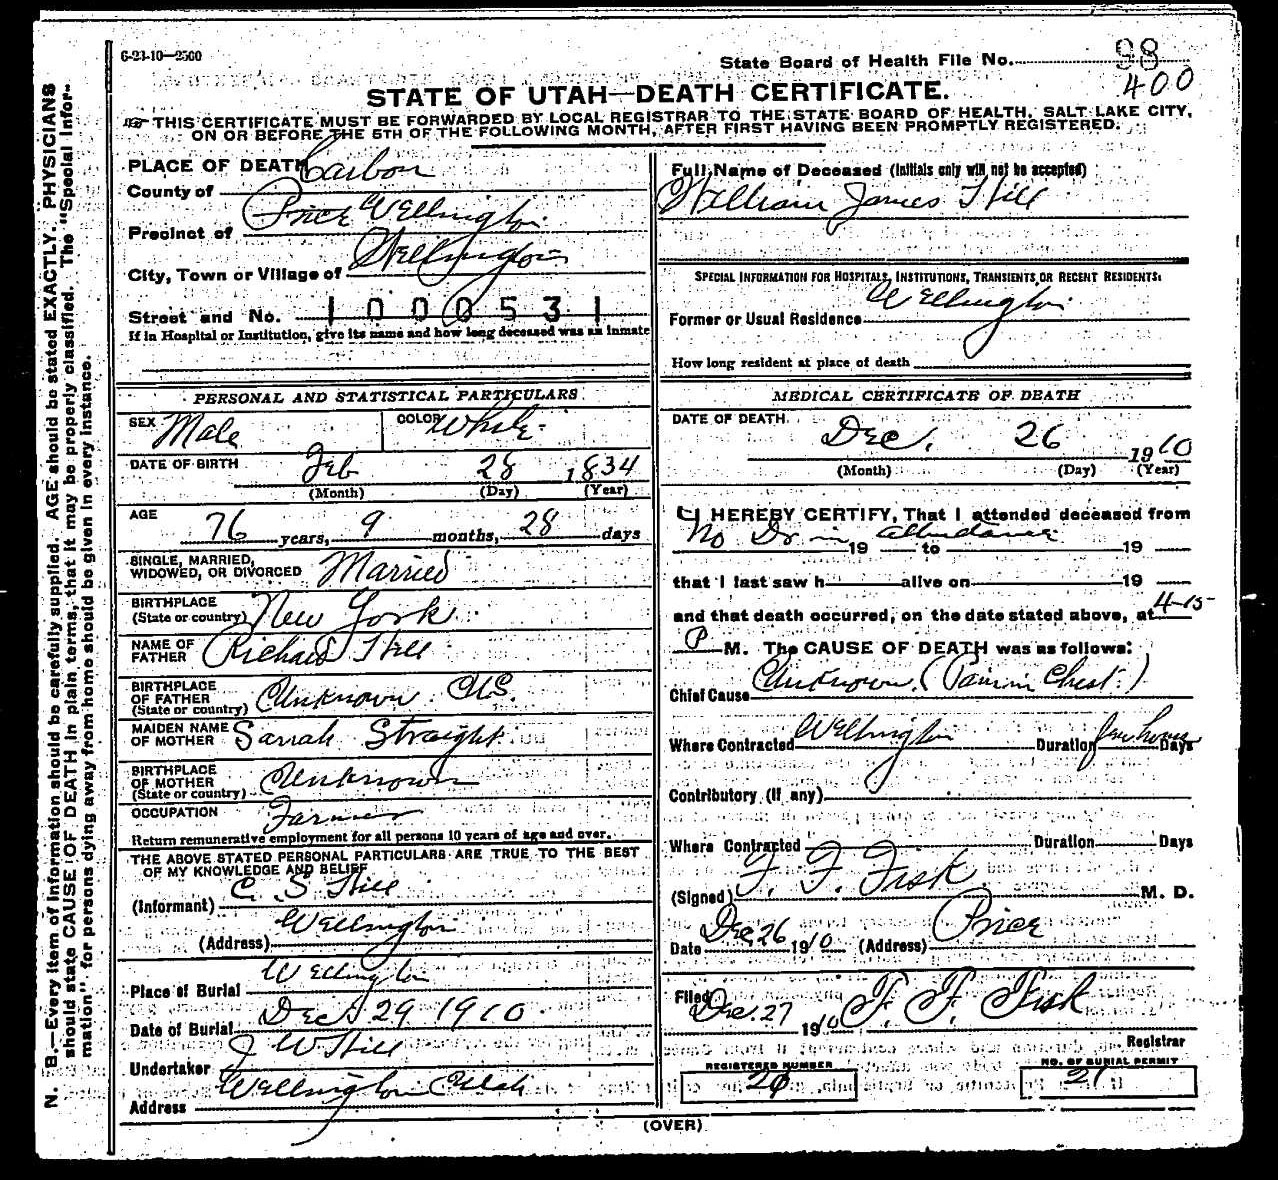 6-23-10—2500
State Board of Health File No. 98
400
STATE OF UTAH—DEATH CERTIFICATE.
THIS CERTIFICATE MUST BE FORWARDED BY LOCAL REGISTRAR TO THE STATE BOARD OF HEALTH, SALT LAKE CITY,
ON OR BEFORE THE 5TH OF THE FOLLOWING MONTH, AFTER FIRST HAVING BEEN PROMPTLY REGISTERED.
PLACE OF DEATH
County of Carbon
Precinct of Price Wellington
City, Town or Village of Wellington
Street and No. 1000531
If in Hospital or Institution, give its name and how long deceased was an inmate
PERSONAL AND STATISTICAL PARTICULARS
SEX Male COLOR White
DATE OF BIRTH Feb 28 1834
(Month) (Day) (Year)
AGE
76 years, 9 months, 28 days
SINGLE, MARRIED,
WIDOWED, OR DIVORCED Married
BIRTHPLACE
(State or country) New York
NAME OF
FATHER Richard Hill
BIRTHPLACE
OF FATHER
(State or country) Unknown. U.S.
MAIDEN NAME
OF MOTHER Sarah Straight
BIRTHPLACE
OF MOTHER
(State or country) Unknown
OCCUPATION Farmer
Return remunerative employment for all persons 10 years of age and over.
THE ABOVE STATED PERSONAL PARTICULARS ARE TRUE TO THE BEST
OF MY KNOWLEDGE AND BELIEF
(Informant) C. S. Hill
(Address) Wellington
Place of Burial Wellington
Date of Burial Dec 29 1910
Undertaker J W Hill
Address Wellington Utah
Full Name of Deceased (Initials only will not be accepted)
William James Hill
SPECIAL INFORMATION FOR HOSPITALS, INSTITUTIONS, TRANSIENTS OR RECENT RESIDENTS:
Former or Usual Residence Wellington
How long resident at place of death
MEDICAL CERTIFICATE OF DEATH
DATE OF DEATH.
Dec. 26 1910
(Month) (Day) (Year)
I HEREBY CERTIFY, That I attended deceased from
No Dr in attendance 19 to 19
that I last saw h alive on 19
and that death occurred, on the date stated above, at 4-15
P M. The CAUSE OF DEATH was as follows:
Chief Cause Unknown. (Pain in Chest.)
Where Contracted Wellington Duration few hours Days
Contributory (if any)
Where Contracted Duration Days
(Signed) F. F. Fisk M. D.
Date Dec 26 1910 (Address) Price
Filed Dec. 27 1910 F. F. Fisk
Registrar
REGISTERED NUMBER
NO. OF BURIAL PERMIT
21
(OVER)
N. B.—Every item of information should be carefully supplied. AGE should be stated EXACTLY. PHYSICIANS
should state CAUSE OF DEATH in plain terms, that it may be properly classified. The "Special Infor-
mation" for persons dying away from home should be given in every instance.